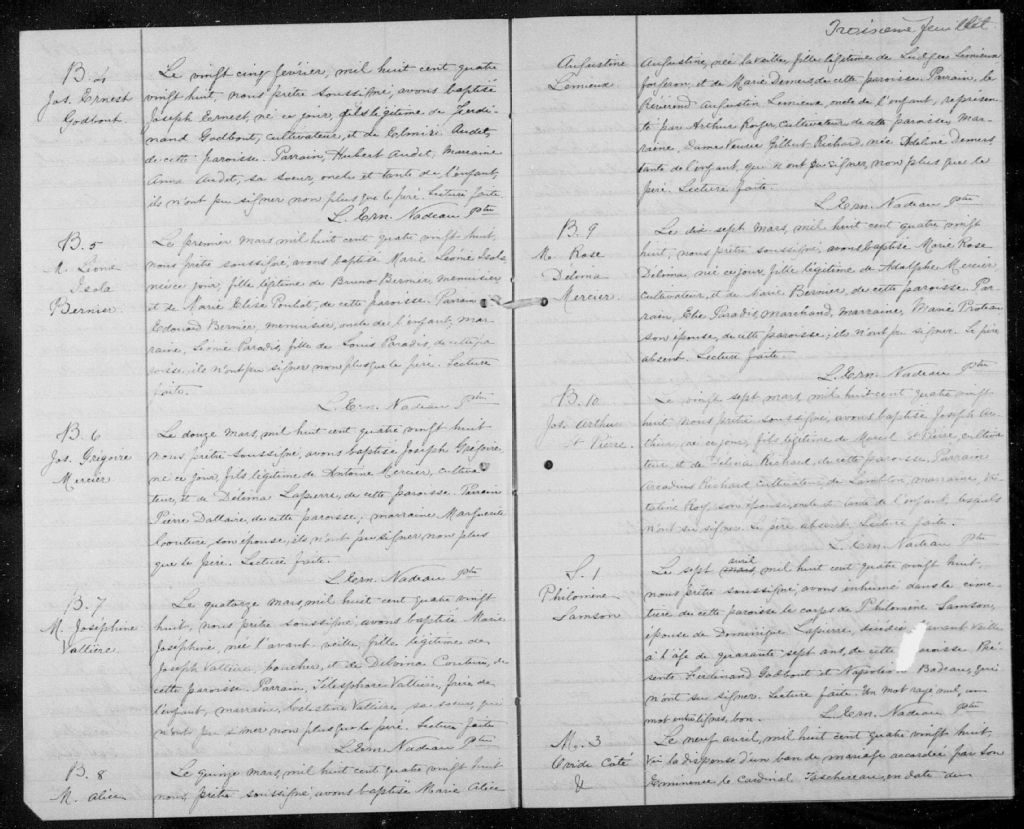 B. 4
Jos. Ernest
Godbout
Le vingt cinq février, mil huit cent quatre
vingt huit, nous prêtre soussigné, avons baptisé
Joseph Ernest, né ce jour, fils légitime de Ferdi-
nand Godbout, cultivateur, et de Audet,
de cette paroisse. Parrain, Hubert Audet, Marraine
Anna Audet, sa soeur, oncle et tante de l'enfant,
ils n'ont pu signer non plus que le père. Lecture faite
L. Ern. Nadeau Ptre
B. 5
M. Léonie
Isola
Bernier
Le premier mars, mil huit cent quatre vingt huit,
nous prêtre soussigné, avons baptisé Marie Léonie Isola
née ce jour, fille légitime de Bruno Bernier, menuisier
et de Marie Elise Pouliot, de cette paroisse. Parrain
Edouard Bernier, menuisier, oncle de l'enfant, mar-
raine, Léonie Paradis, fille de Louis Paradis, de cette pa
roisse, ils n'ont pu signer non plus que le père. Lecture
faite.
L. Ern. Nadeau Ptre
B. 6
Jos. Grégoire
Mercier
Le douze mars, mil huit cent quatre vingt huit
nous prêtre soussigné, avons baptisé Joseph Grégoire
né ce jour, fils légitime de Antoine Mercier, cultiva
teur, et de Délima Lapierre, de cette paroisse. Parrain
Pierre Dallaire, de cette paroisse; marraine Marguerite
Couture son épouse, ils n'ont pu signer non plus
que le père. Lecture faite.
L. Ern. Nadeau Ptre
B. 7
M. Joséphine
Vallière
Le quatorze mars, mil huit cent quatre vingt
huit, nous prêtre soussigné, avons baptisé Marie
Joséphine, née l'avant veille, fille légitime de
Joseph Vallière, boucher, et de Délvina Couture, de
cette paroisse. Parrain, Télesphore Vallière, frère de
l'enfant, marraine, Célestine Vallière sa soeur, qui
n'ont pu signer non plus que le père. Lecture faite
L. Ern. Nadeau Ptre
B. 8
M. Alice
Le quinze mars, mil huit cent quatre vingt huit
nous, prêtre soussigné, avons baptisé Marie Alice
Troisième feuillet
Augustine
Lemieux
Augustine, née la veille, fille légitime de Ludger Lemieux
forgeron, et de Marie Demers de cette paroisse. Parrain, le
Révérend Augustin Lemieux, oncle de l'enfant, représen
té par Arthur Royer, cultivateur, de cette paroisse, mar-
raine, Dame Veuve Gilbert Richard, née Adeline Demers,
tante de l'enfant, qui n'ont pu signer, non plus que le
père. Lecture faite.
L. Ern. Nadeau Ptre
B. 9
M. Rose
Délima
Mercier
Le dix sept mars, mil huit cent quatre vingt
huit, nous prêtre soussigné, avons baptisé Marie Rose
Délima, née ce jour, fille légitime de Adolphe Mercier
cultivateur, et de Marie Bernier, de cette paroisse. Par
rain, Elie Paradis, marchand, marraine, Marie Proteau
son épouse, de cette paroisse, ils n'ont pu signer. Le père
absent. Lecture faite
L. Ern. Nadeau Ptre
B. 10
Jos. Arthur
St Pierre
Le vingt sept mars, mil huit cent quatre vingt
huit, nous prêtre soussigné, avons baptisé Joseph Ar
thur, né ce jour, fils légitime de St Pierre, cultiva
teur et de Richard, de cette paroisse. Parrain
Arcadius Richard cultivateur, de Lambton, marraine, Vi
taline Roy, son épouse, oncle et tante de l'enfant, lesquels
n'ont su signer. Le père absent. Lecture faite.
L. Ern. Nadeau Ptre
S. 1
Philomène
Samson
Le sept mars avril, mil huit cent quatre vingt huit,
nous prêtre soussigné, avons inhumé dans le cime-
tière de cette paroisse le corps de Philomène Samson,
épouse de Dominique Lapierre, décédée avant veille
à l'âge de quarante sept ans, de cette paroisse. Pré
sents Ferdinand Godbout et Napoléon Badeau, qui
n'ont su signer. Lecture faite. Un mot rayé nul, un
mot entre lignes, bon.
L. Ern. Nadeau Ptre
M. 3
Ovide Côté
&
Le neuf avril, mil huit cent quatre vingt huit,
Vu la dispense d'un ban de mariage accordée par Son
Eminence le Cardinal Taschereau, en date du